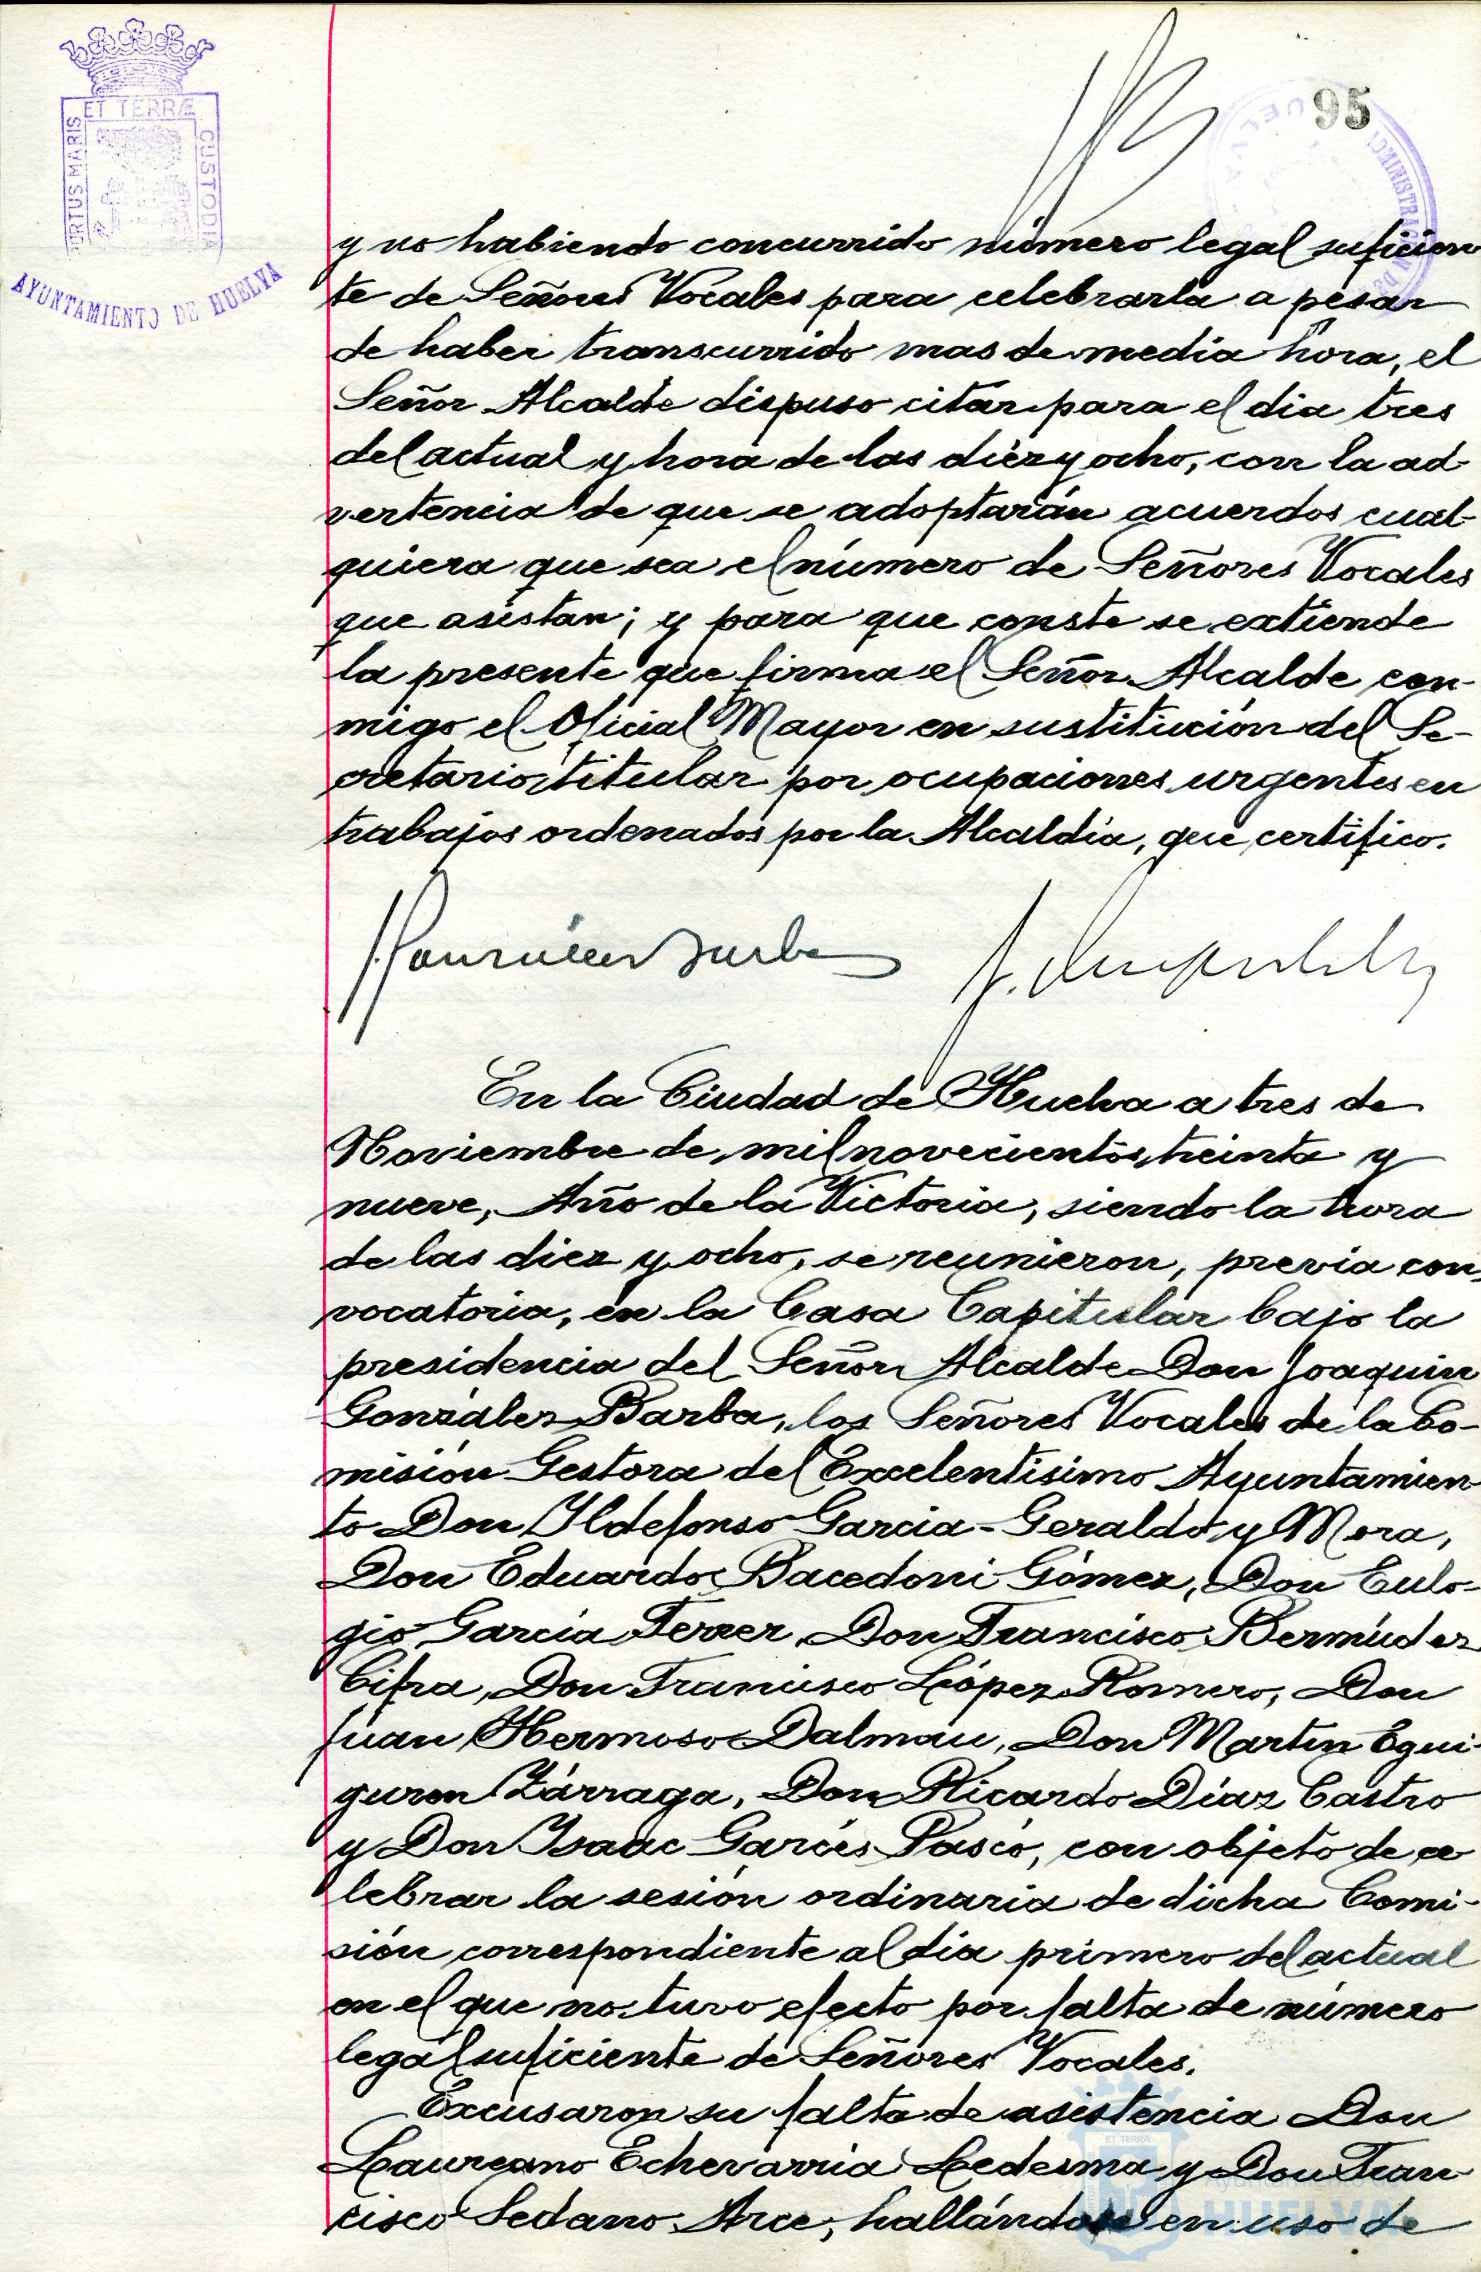 ET TERRÆ
PORTUS MARIS
CUSTODIA
AYUNTAMIENTO DE HUELVA
95
y no habiendo concurrido número legal suficien
te de Señores Vocales para celebrarla a pesar
de haber transcurrido mas de media hora, el
Señor Alcalde dispuso citar para el dia tres
del actual y hora de las diez y ocho, con la ad-
vertencia de que se adoptarán acuerdos cual-
quiera que sea el número de Señores Vocales
que asistan; y para que conste se extiende
la presente que firma el Señor Alcalde con-
migo el Oficial Mayor en sustitución del Se-
cretario titular por ocupaciones urgentes en
trabajos ordenados por la Alcaldía, que certifico.
En la Ciudad de Huelva a tres de
Noviembre de mil novecientos treinta y
nueve, Año de la Victoria, siendo la hora
de las diez y ocho, se reunieron, previa con-
vocatoria, en la Casa Capitular bajo la
presidencia del Señor Alcalde Don Joaquin
González Barba, los Señores Vocales de la Co-
misión Gestora del Excelentisimo Ayuntamien
to Don Ildefonso Garcia-Geraldo y Mora,
Don Eduardo Bacedoni Gómez, Don Eulo-
gio García Ferrer, Don Francisco Bermúdez
Cifra, Don Francisco López Romero, Don
Juan Hermoso Dalmau, Don Martin Egui-
guren Zárraga, Don Ricardo Díaz Castro
y Don Isaac Garcés Pasco, con objeto de ce
lebrar la sesión ordinaria de dicha Comi-
sión correspondiente al dia primero del actual
en el que no tuvo efecto por falta de número
legal suficiente de Señores Vocales.
Excusaron su falta de asistencia Don
Laureano Echevarria Ledesma y Don Fran
cisco Sedano Arce, hallándose en uso de
Ayuntamiento de
HUELVA